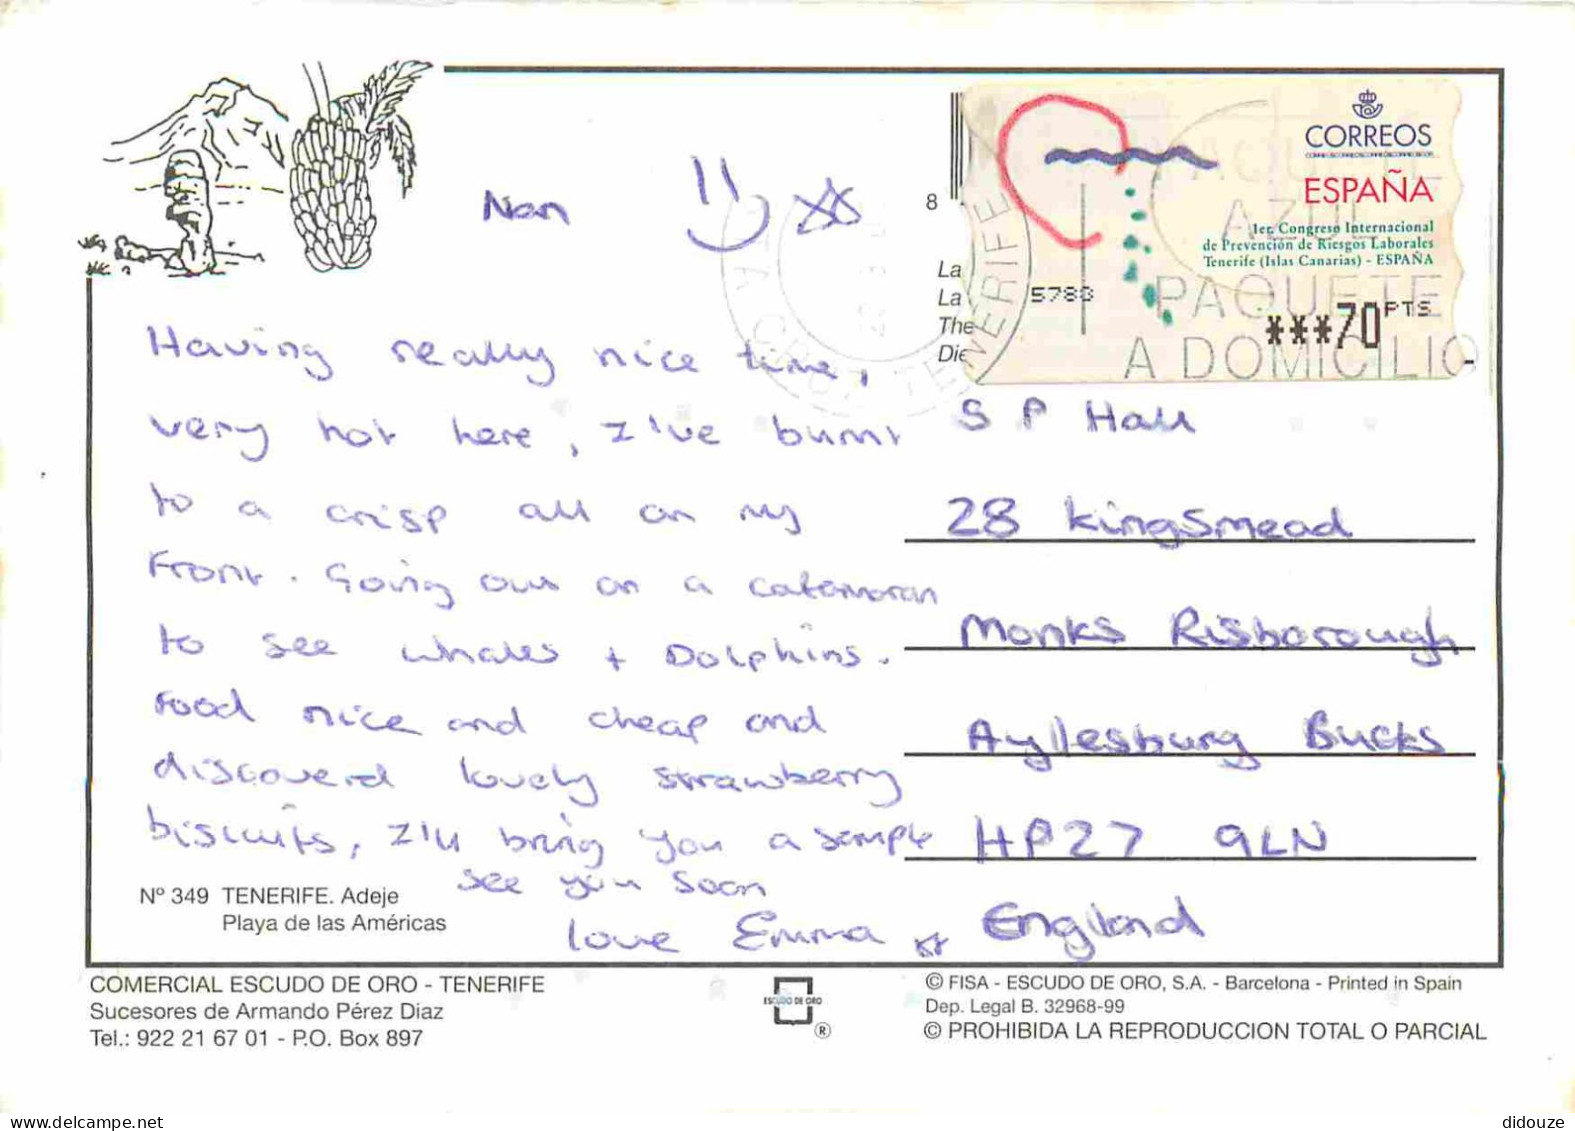 Nan
Having really nice time,
very hot here, I've burnt
to a crisp all on my
Front. Going out on a catamaran
to see whales + Dolphins.
Food nice and cheap and
discoverd lovely strawberry
biscuits, I'll bring you a sample
see you soon
love Emma
CORREOS
ESPAÑA
1er. Congreso Internacional
de Prevención de Riesgos Laborales
Tenerife (Islas Canarias) - ESPAÑA
5788
***70 PTS
8
La
La
The
Die
TENERIFE
PAQUETE
AZUL
PAQUETE
A DOMICILIO
S P Hall
28 Kingsmead
Monks Risborough
Ayllesburg Bucks
HP27 9LN
England
Nº 349 TENERIFE. Adeje
Playa de las Américas
COMERCIAL ESCUDO DE ORO - TENERIFE
Sucesores de Armando Pérez Diaz
Tel.: 922 21 67 01 - P.O. Box 897
ESCUDO DE ORO
®
© FISA - ESCUDO DE ORO, S.A. - Barcelona - Printed in Spain
Dep. Legal B. 32968-99
© PROHIBIDA LA REPRODUCCION TOTAL O PARCIAL
www.delcampe.net
didouze